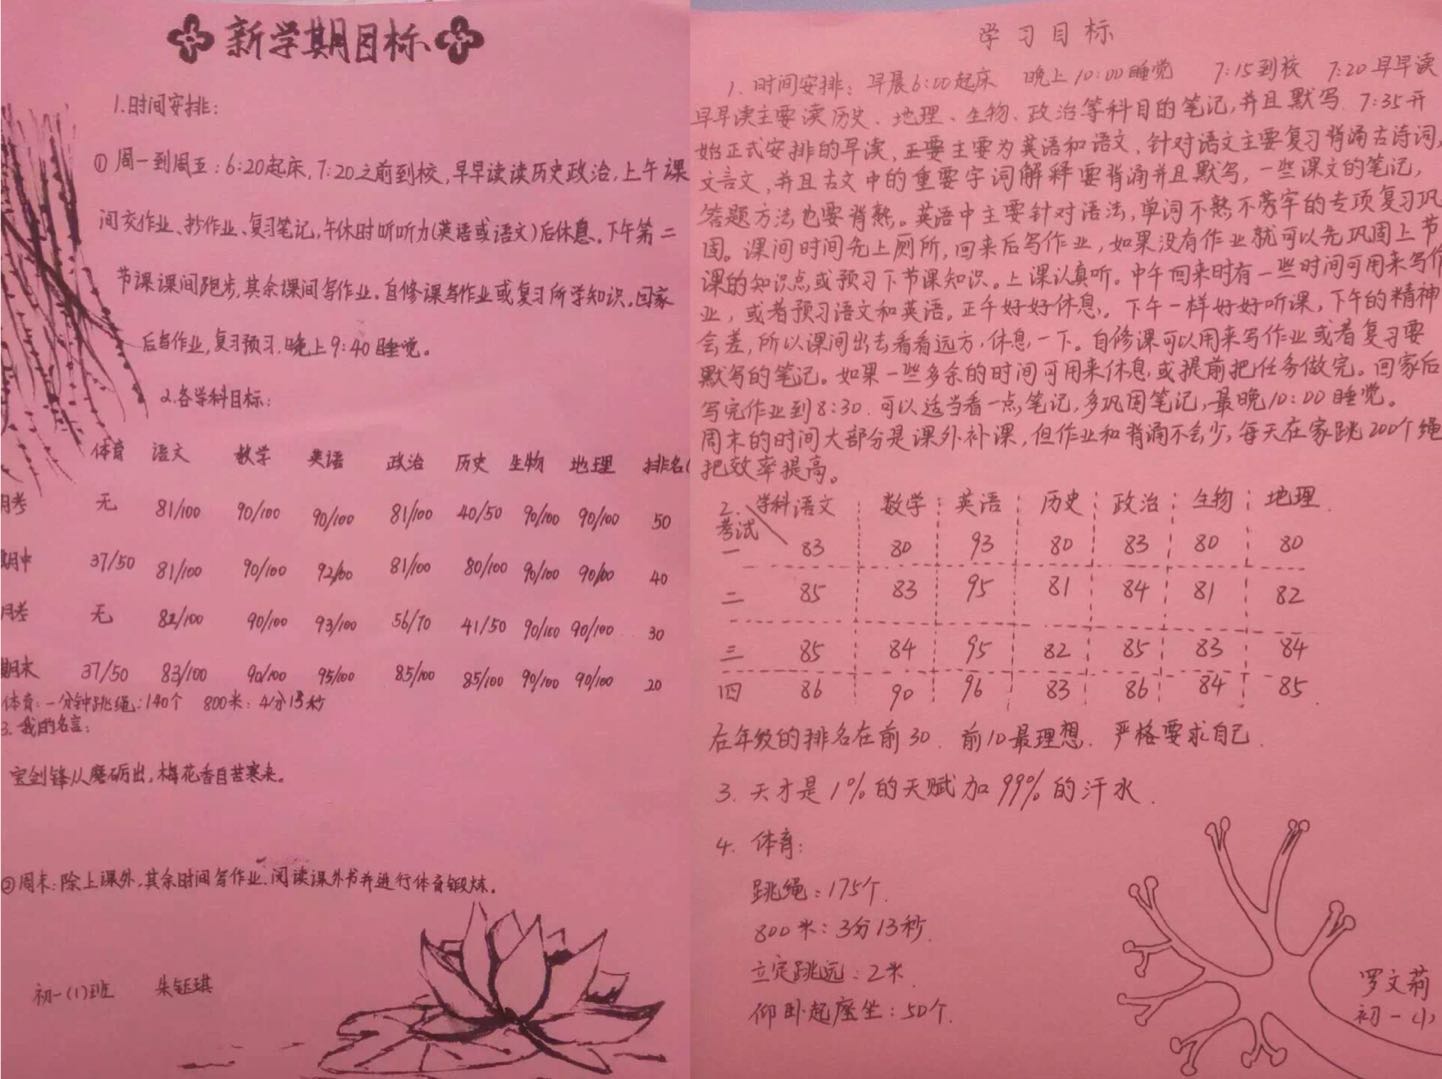 新学期目标
1.时间安排:
① 周一到周五:6:20起床,7:20之前到校,早早读读历史政治,上午课
间交作业、抄作业、复习笔记,午休时听听力(英语或语文)后休息。下午第二
节课课间跑步,其余课间写作业。自修课写作业或复习所学知识。回家
后写作业,复习预习.晚上9:40睡觉。
2.各学科目标:
体育 语文 数学 英语 政治 历史 生物 地理 排名(
月考 无 81/100 90/100 90/100 81/100 40/50 90/100 90/100 50
期中 37/50 81/100 90/100 92/100 81/100 80/100 90/100 90/100 40
月考 无 82/100 90/100 93/100 56/70 41/50 90/100 90/100 30
期末 37/50 83/100 90/100 95/100 85/100 85/100 90/100 90/100 20
体育:一分钟跳绳:140个 800米:4分13秒
3.我的名言:
宝剑锋从磨砺出,梅花香自苦寒来。
②周末:除上课外,其余时间写作业.阅读课外书并进行体育锻炼。
初一(1)班 朱钰琪
学习目标
1.时间安排:早晨6:00起床 晚上10:00睡觉 7:15到校 7:20早早读
早早读主要读历史、地理、生物、政治等科目的笔记,并且默写.7:35开
始正式安排的早读,主要主要为英语和语文,针对语文主要复习背诵古诗词,
文言文,并且古文中的重要字词解释要背诵并且默写,一些课文的笔记,
答题方法也要背熟。英语中主要针对语法,单词不熟不牢的专项复习巩
固。课间时间先上厕所,回来后写作业,如果没有作业就可以先巩固上节
课的知识点或预习下节课知识。上课认真听。中午回来时有一些时间可用来写作
业,或者预习语文和英语。正午好好休息。下午一样好好听课,下午的精神
会差,所以课间出去看看远方,休息一下。自修课可以用来写作业或者复习要
默写的笔记。如果一些多余的时间可用来休息或提前把任务做完。回家后
写完作业到8:30.可以适当看一点笔记,多巩固笔记,最晚10:00睡觉。
周末的时间大部分是课外补课,但作业和背诵不会少,每天在家跳200个绳
把效率提高。
2.学科 考试 语文 数学 英语 历史 政治 生物 地理
一 83 80 93 80 83 80 80
二 85 83 95 81 84 81 82
三 85 84 95 82 85 83 84
四 86 90 96 83 86 84 85
在年级的排名在前30.前10最理想.严格要求自己.
3.天才是1%的天赋加99%的汗水.
4.体育:
跳绳:175个.
800米:3分13秒.
立定跳远:2米.
仰卧起座坐:50个.
罗文莉
初一(1)